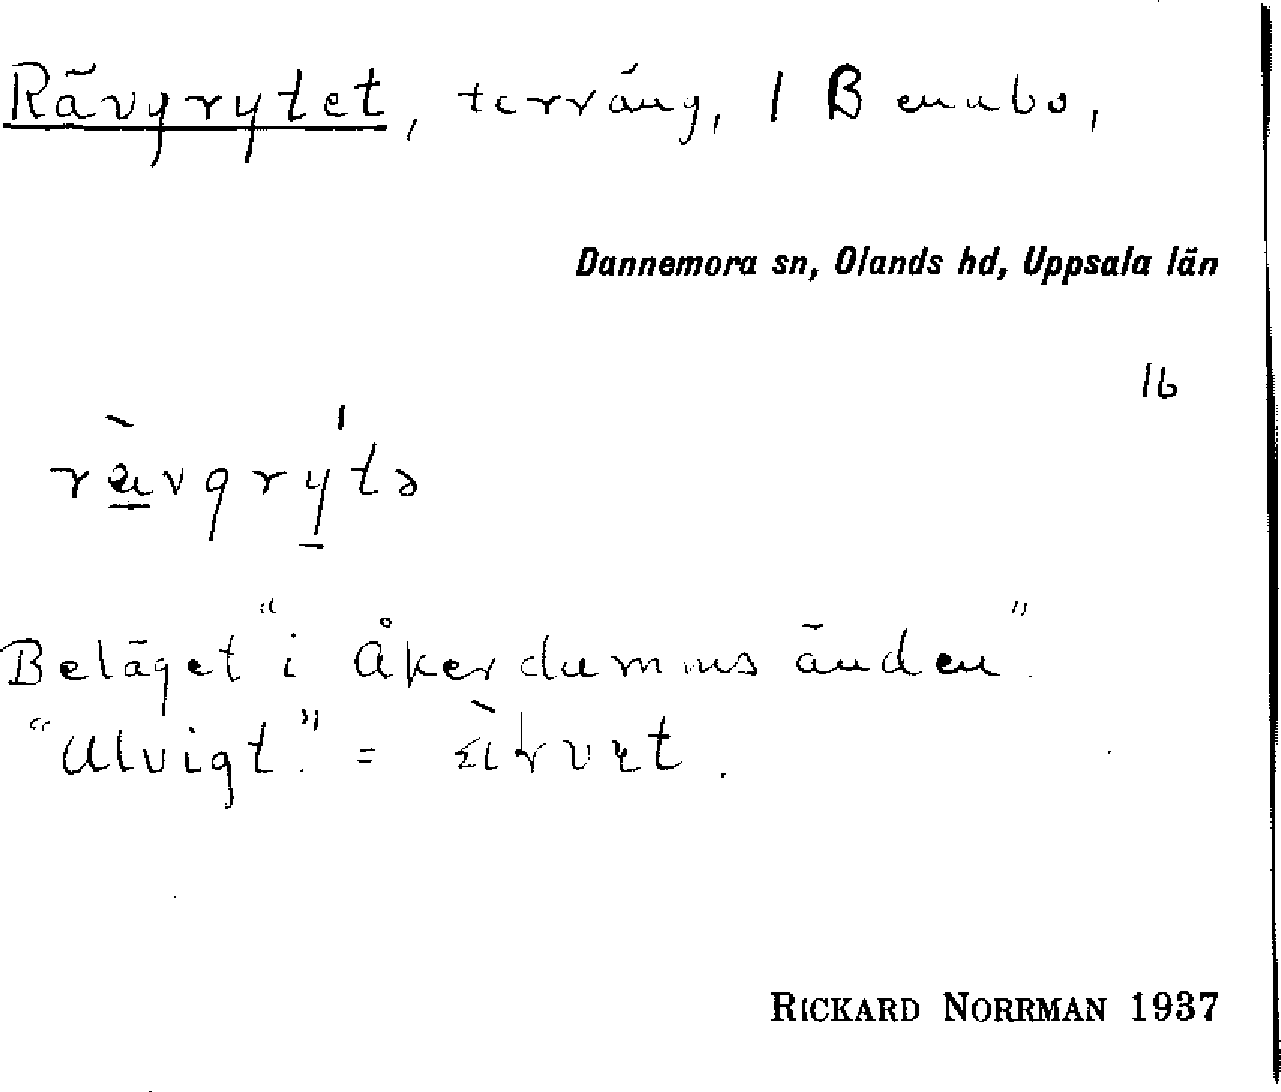 Rävgrytet, terräng, 1 Bennbo,
Dannemora sn, Olands hd, Uppsala län
16
rævgrytə
Beläget "i Åkerdammsänden".
"Ulvigt." =
RICKARD NORRMAN 1937